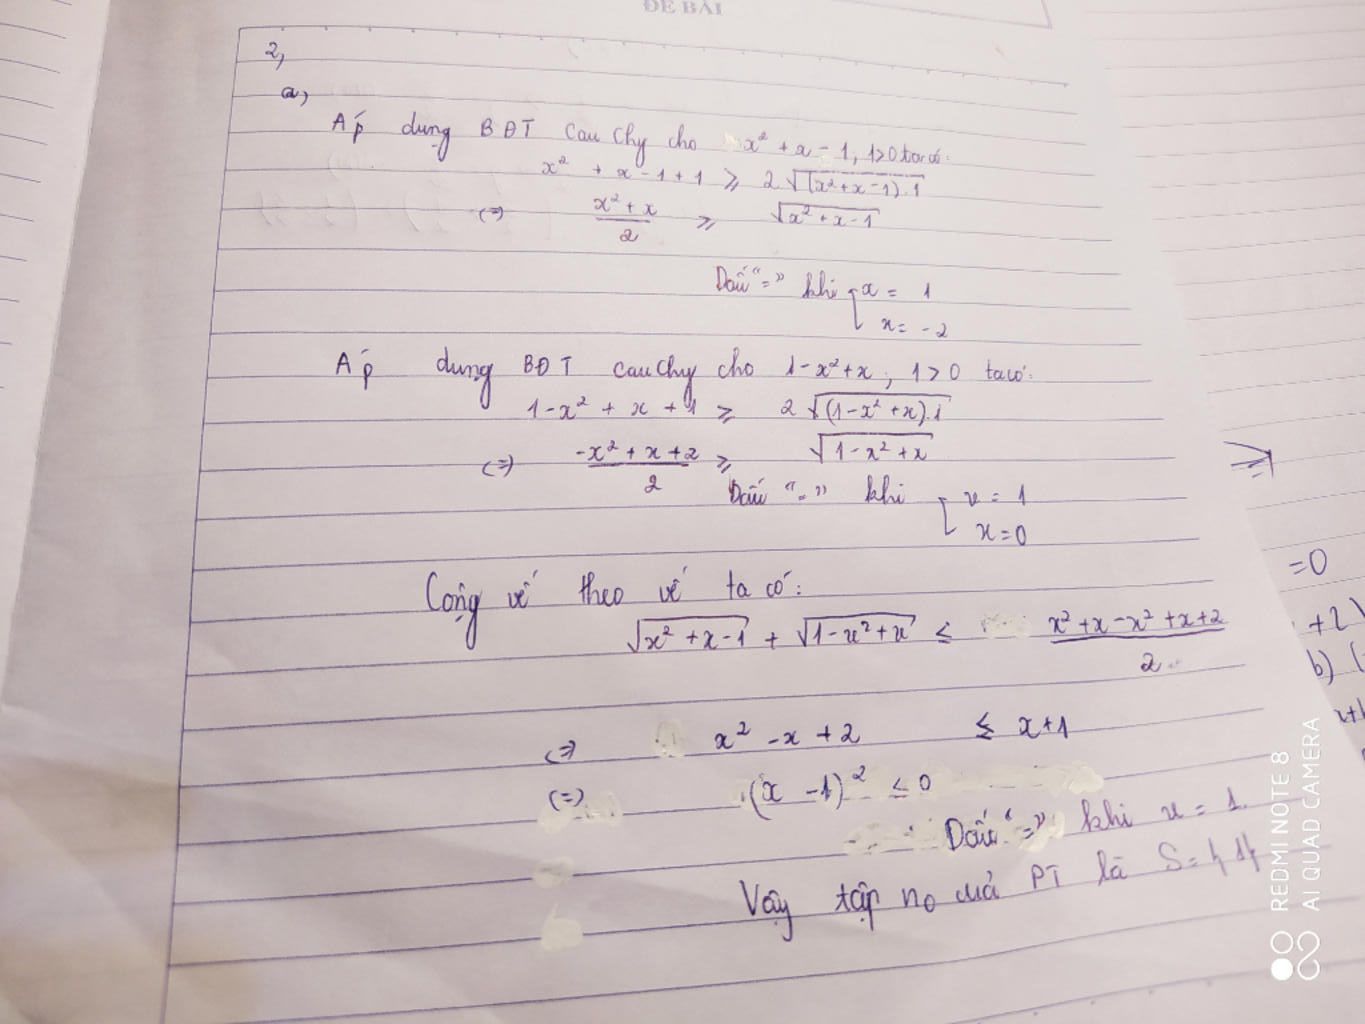 ĐỀ BÀI
2,
a,
Áp dụng BĐT Cauchy cho x² + x - 1, 1>0 ta có:
x² + x - 1 + 1 ⩾ 2√(x²+x-1).1
(=) x² + x / 2 ⩾ √x² + x - 1
Dấu "=" khi [ x = 1
x = -2
Áp dụng BĐT cauchy cho 1-x²+x, 1>0 ta có:
1-x² + x + 1 ⩾ 2√(1-x²+x).1
(=) -x² + x + 2 / 2 ⩾ √1-x²+x
Dấu "=" khi [ x = 1
x = 0
Cộng vế theo vế ta có:
√x² + x - 1 + √1-x²+x ≤ x² + x - x² + x + 2 / 2
(=) x² - x + 2 ≤ x+1
(=) (x - 1)² ≤ 0
Dấu "=" khi x = 1.
Vậy tập no của PT là S = {1}
=0
+2)
b) (
REDMI NOTE 8
AI QUAD CAMERA